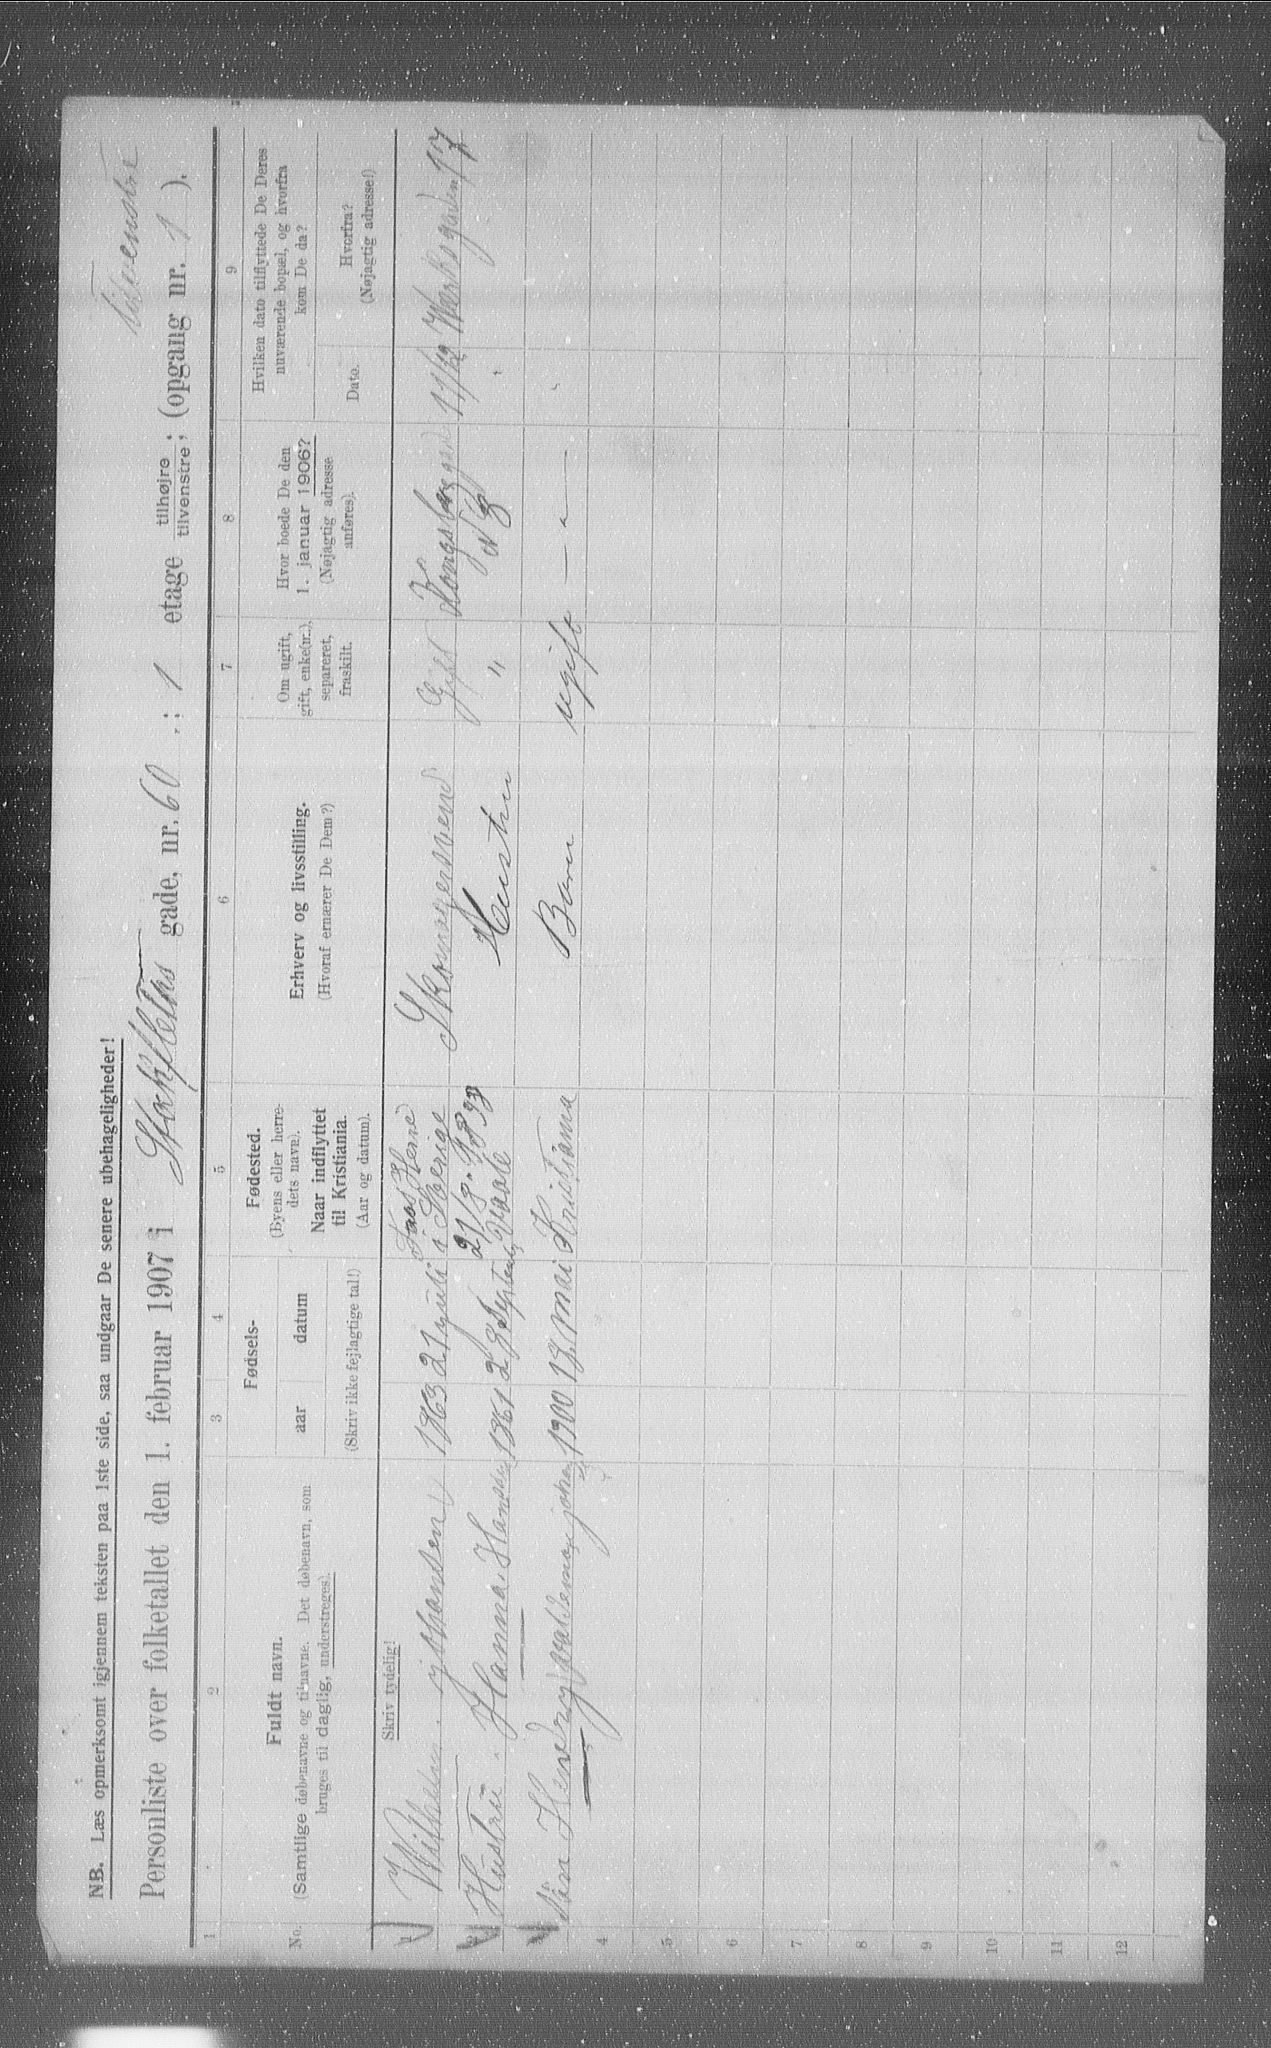 NB. Læs opmerksomt igjennem teksten paa 1ste side, saa undgaar De senere ubehageligheder!
tilvenstre
Personliste over folketallet den 1. februar 1907 i Stokfleths gade, nr. 60 .: 1 etage tilhøjre tilvenstre; (opgang nr. 1 ).
1 2 3 4 5 6 7 8 9
No.
Fuldt navn.
(Samtlige døbenavne og tilnavne. Det døbenavn, som
bruges til daglig, understreges).
Fødsels-
aar datum
(Skriv ikke fejlagtige tal!)
Fødested.
(Byens eller herre-
dets navn).
Naar indflyttet
til Kristiania.
(Aar og datum).
Erhverv og livsstilling.
(Hvoraf ernærer De Dem?)
Om ugift,
gift, enke(nr.),
separeret,
fraskilt.
Hvor boede De den
1. januar 1906?
(Nøjagtig adresse
anføres).
Hvilken dato tilflyttede De Deres
nuværende bopæl, og hvorfra
kom De da?
Dato.
Hvorfra?
(Nøjagtig adresse!)
Skriv tydelig!
1 Wilhelm. johansen 1863 21 yuli i Sverige Skomagersvend Gift 11/12 17
2 Hustru. Hanna. Hanssen 1861 28 September Vaale Hustru " N 8 "
3 Sön Henry valdemar johan 1900 18 mai Kristiania Barn ugift — " — "
4
5
6
7
8
9
10
11
12